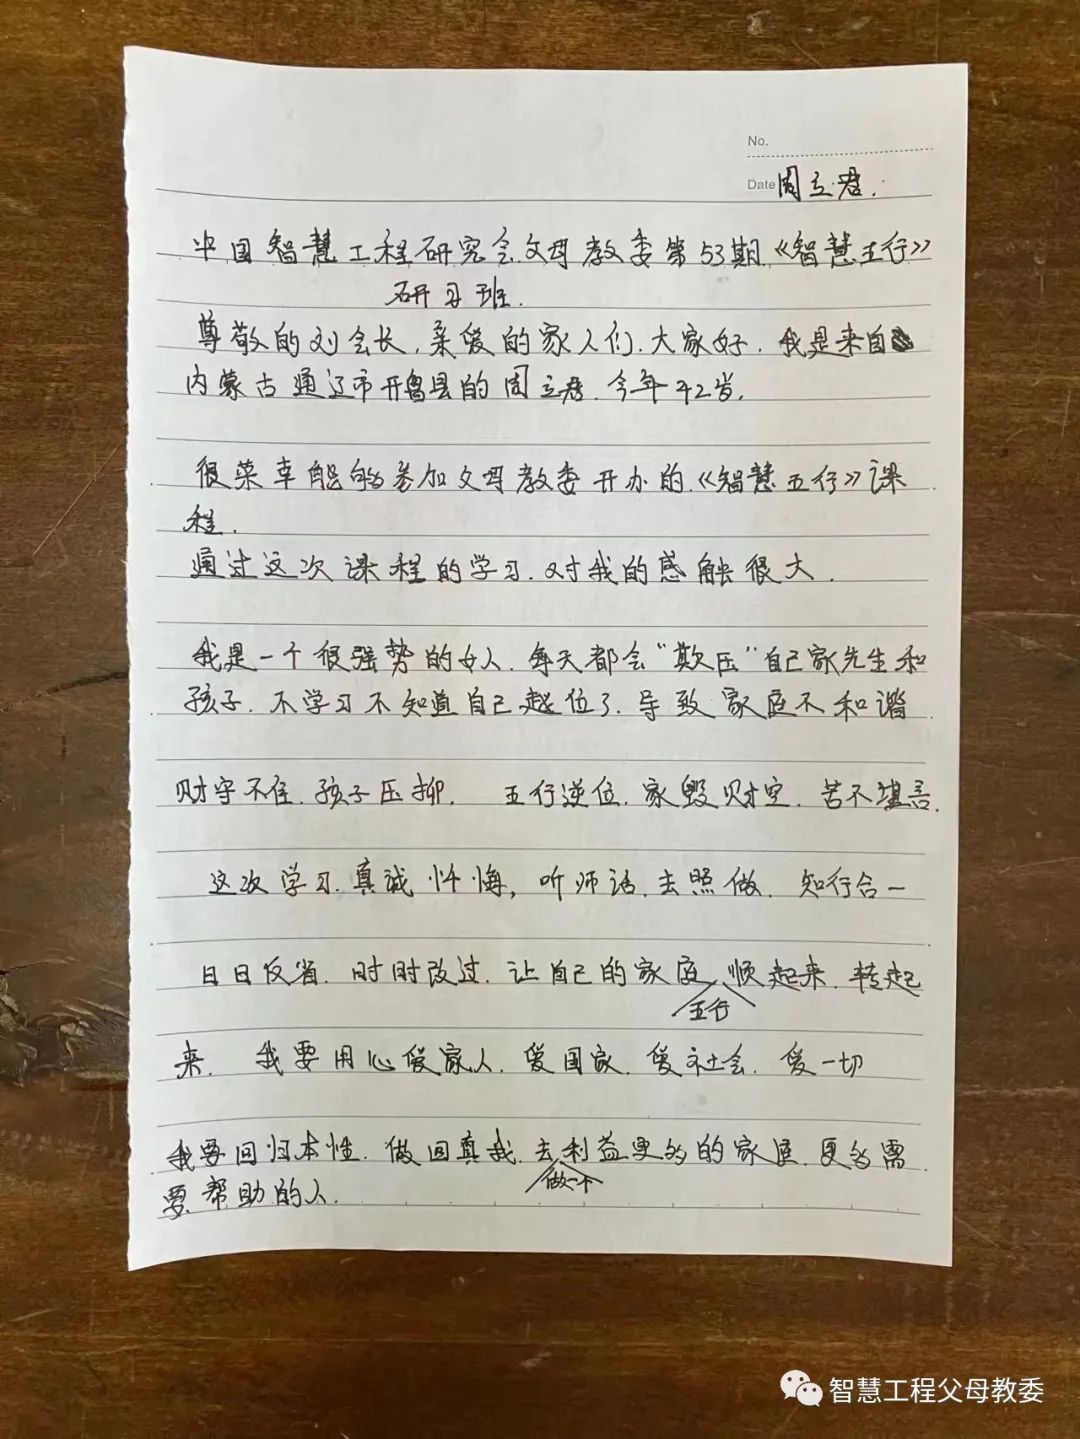 No.
Date 周立君.
中国智慧工程研究会父母教委第53期《智慧五行》
研习班.
尊敬的刘会长,亲爱的家人们.大家好.我是来自
内蒙古通辽市开鲁县的周立君.今年42岁.
很荣幸能够参加父母教委开办的《智慧五行》课
程.
通过这次课程的学习.对我的感触很大.
我是一个很强势的女人.每天都会"欺压"自己家先生和
孩子.不学习不知道自己越位了.导致家庭不和谐
财守不住.孩子压抑. 五行逆位.家毁财空.苦不堪言.
这次学习.真诚忏悔,听师话.去照做.知行合一
日日反省.时时改过.让自己的家庭五行顺起来.转起
来. 我要用心爱家人.爱国家.爱社会.爱一切
我要回归本性.做回真我.去做一个利益更多的家庭.更多需
要帮助的人.
智慧工程父母教委